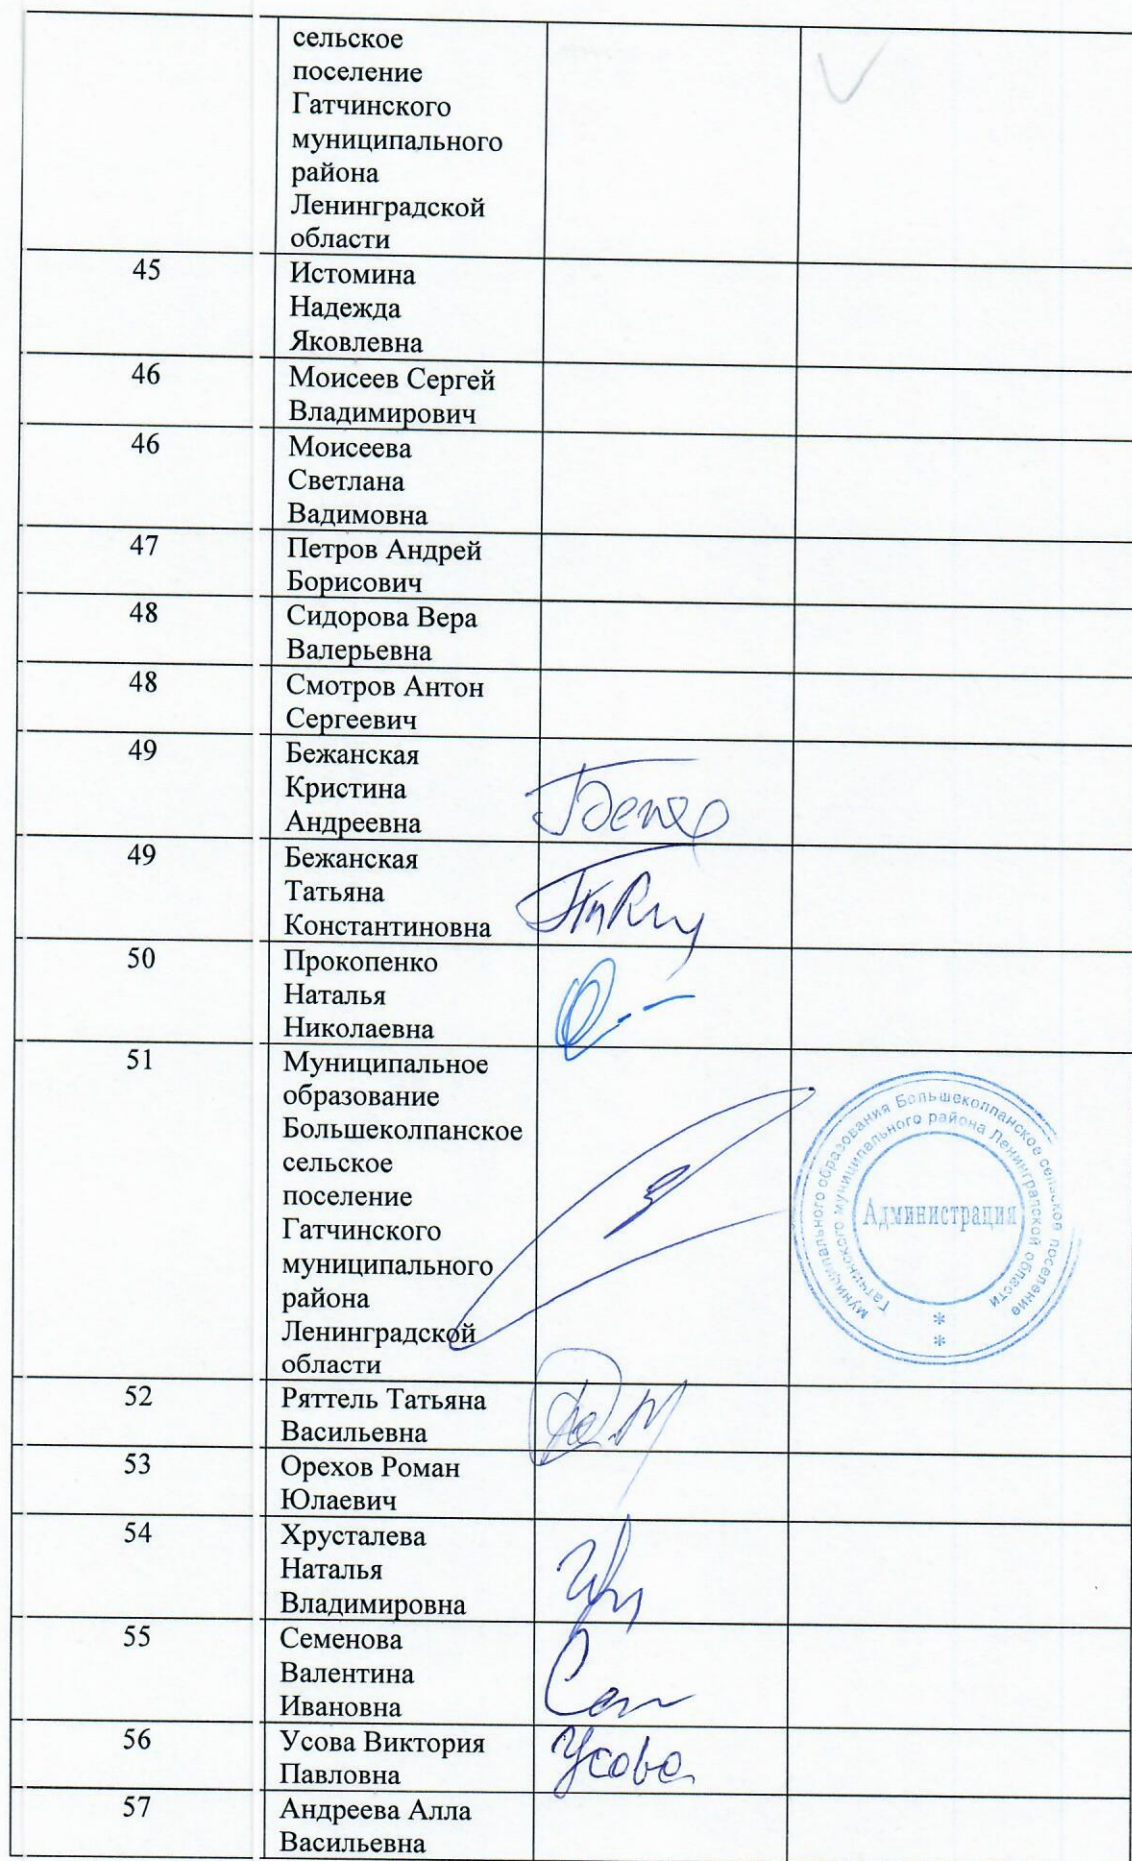 сельское
поселение
Гатчинского
муниципального
района
Ленинградской
области
45
Истомина
Надежда
Яковлевна
46
Моисеев Сергей
Владимирович
46
Моисеева
Светлана
Вадимовна
47
Петров Андрей
Борисович
48
Сидорова Вера
Валерьевна
48
Смотров Антон
Сергеевич
49
Бежанская
Кристина
Андреевна
49
Бежанская
Татьяна
Константиновна
50
Прокопенко
Наталья
Николаевна
51
Муниципальное
образование
Большеколпанское
сельское
поселение
Гатчинского
муниципального
района
Ленинградской
области
муниципального образования Большеколпанское сельское поселение
Гатчинского муниципального района Ленинградской области
Администрация
* *
52
Ряттель Татьяна
Васильевна
53
Орехов Роман
Юлаевич
54
Хрусталева
Наталья
Владимировна
55
Семенова
Валентина
Ивановна
56
Усова Виктория
Павловна
Усова
57
Андреева Алла
Васильевна